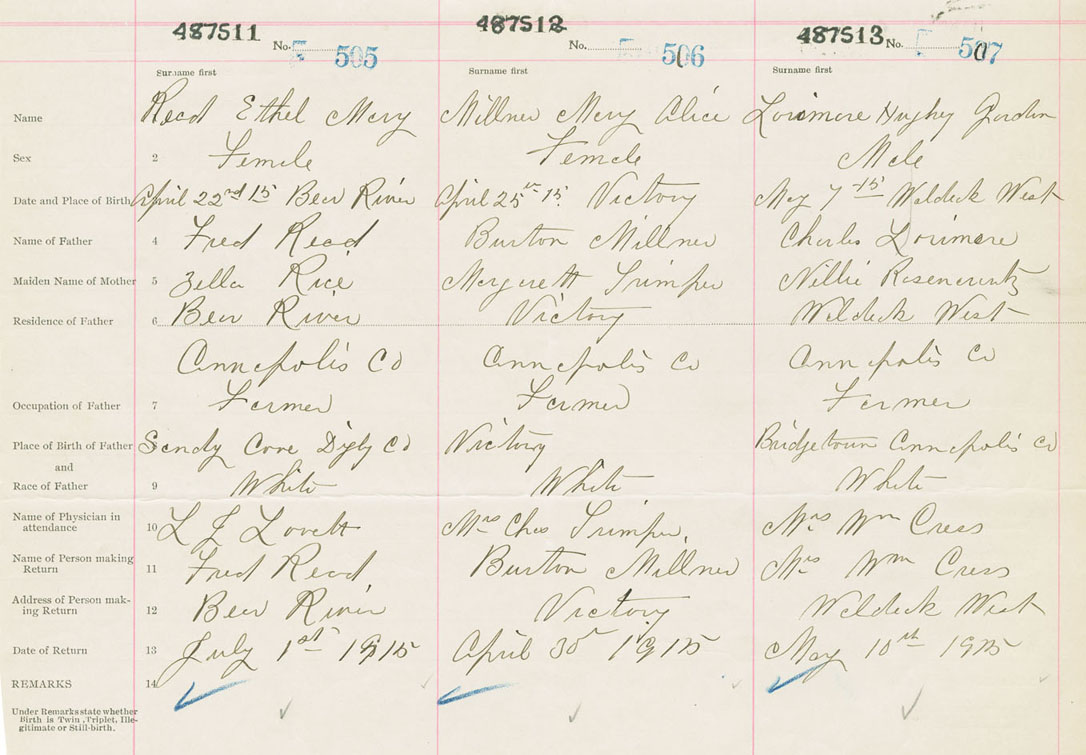 487511 No. 5 505 487512 No. 5 506 487513 No. 5 507
Surname first Surname first Surname first
Name Read Ethel Mary Millner Mary Alice Lorimore Hughey Gordon
Sex 2 Female Female Male
Date and Place of Birth April 22nd 15 Bear River April 25th 15. Victory May 7 15 Waldeck West
Name of Father 4 Fred Read Burton Millner Charles Lorimore
Maiden Name of Mother 5 Zella Rice Margarett Trimper Nillie
Residence of Father 6 Bear River Victory Waldeck West
Annapolis Co Annapolis Co Annapolis Co
Occupation of Father 7 Farmer Farmer Farmer
Place of Birth of Father Sandy Cove Digby Co Victory Bridgetown Annapolis Co
and
Race of Father 9 White White White
Name of Physician in
attendance 10 L J Lovett Mrs Chas Trimper. Mrs Wm Cress
Name of Person making
Return 11 Fred Read Burton Millner Mrs Wm Cress
Address of Person mak-
ing Return 12 Bear River Victory Waldeck West
Date of Return 13 July 1st 1915 April 30 1915 May 10th 1915
REMARKS 14
Under Remarks state whether
Birth is Twin, Triplet, Ille-
gitimate or Still-birth.